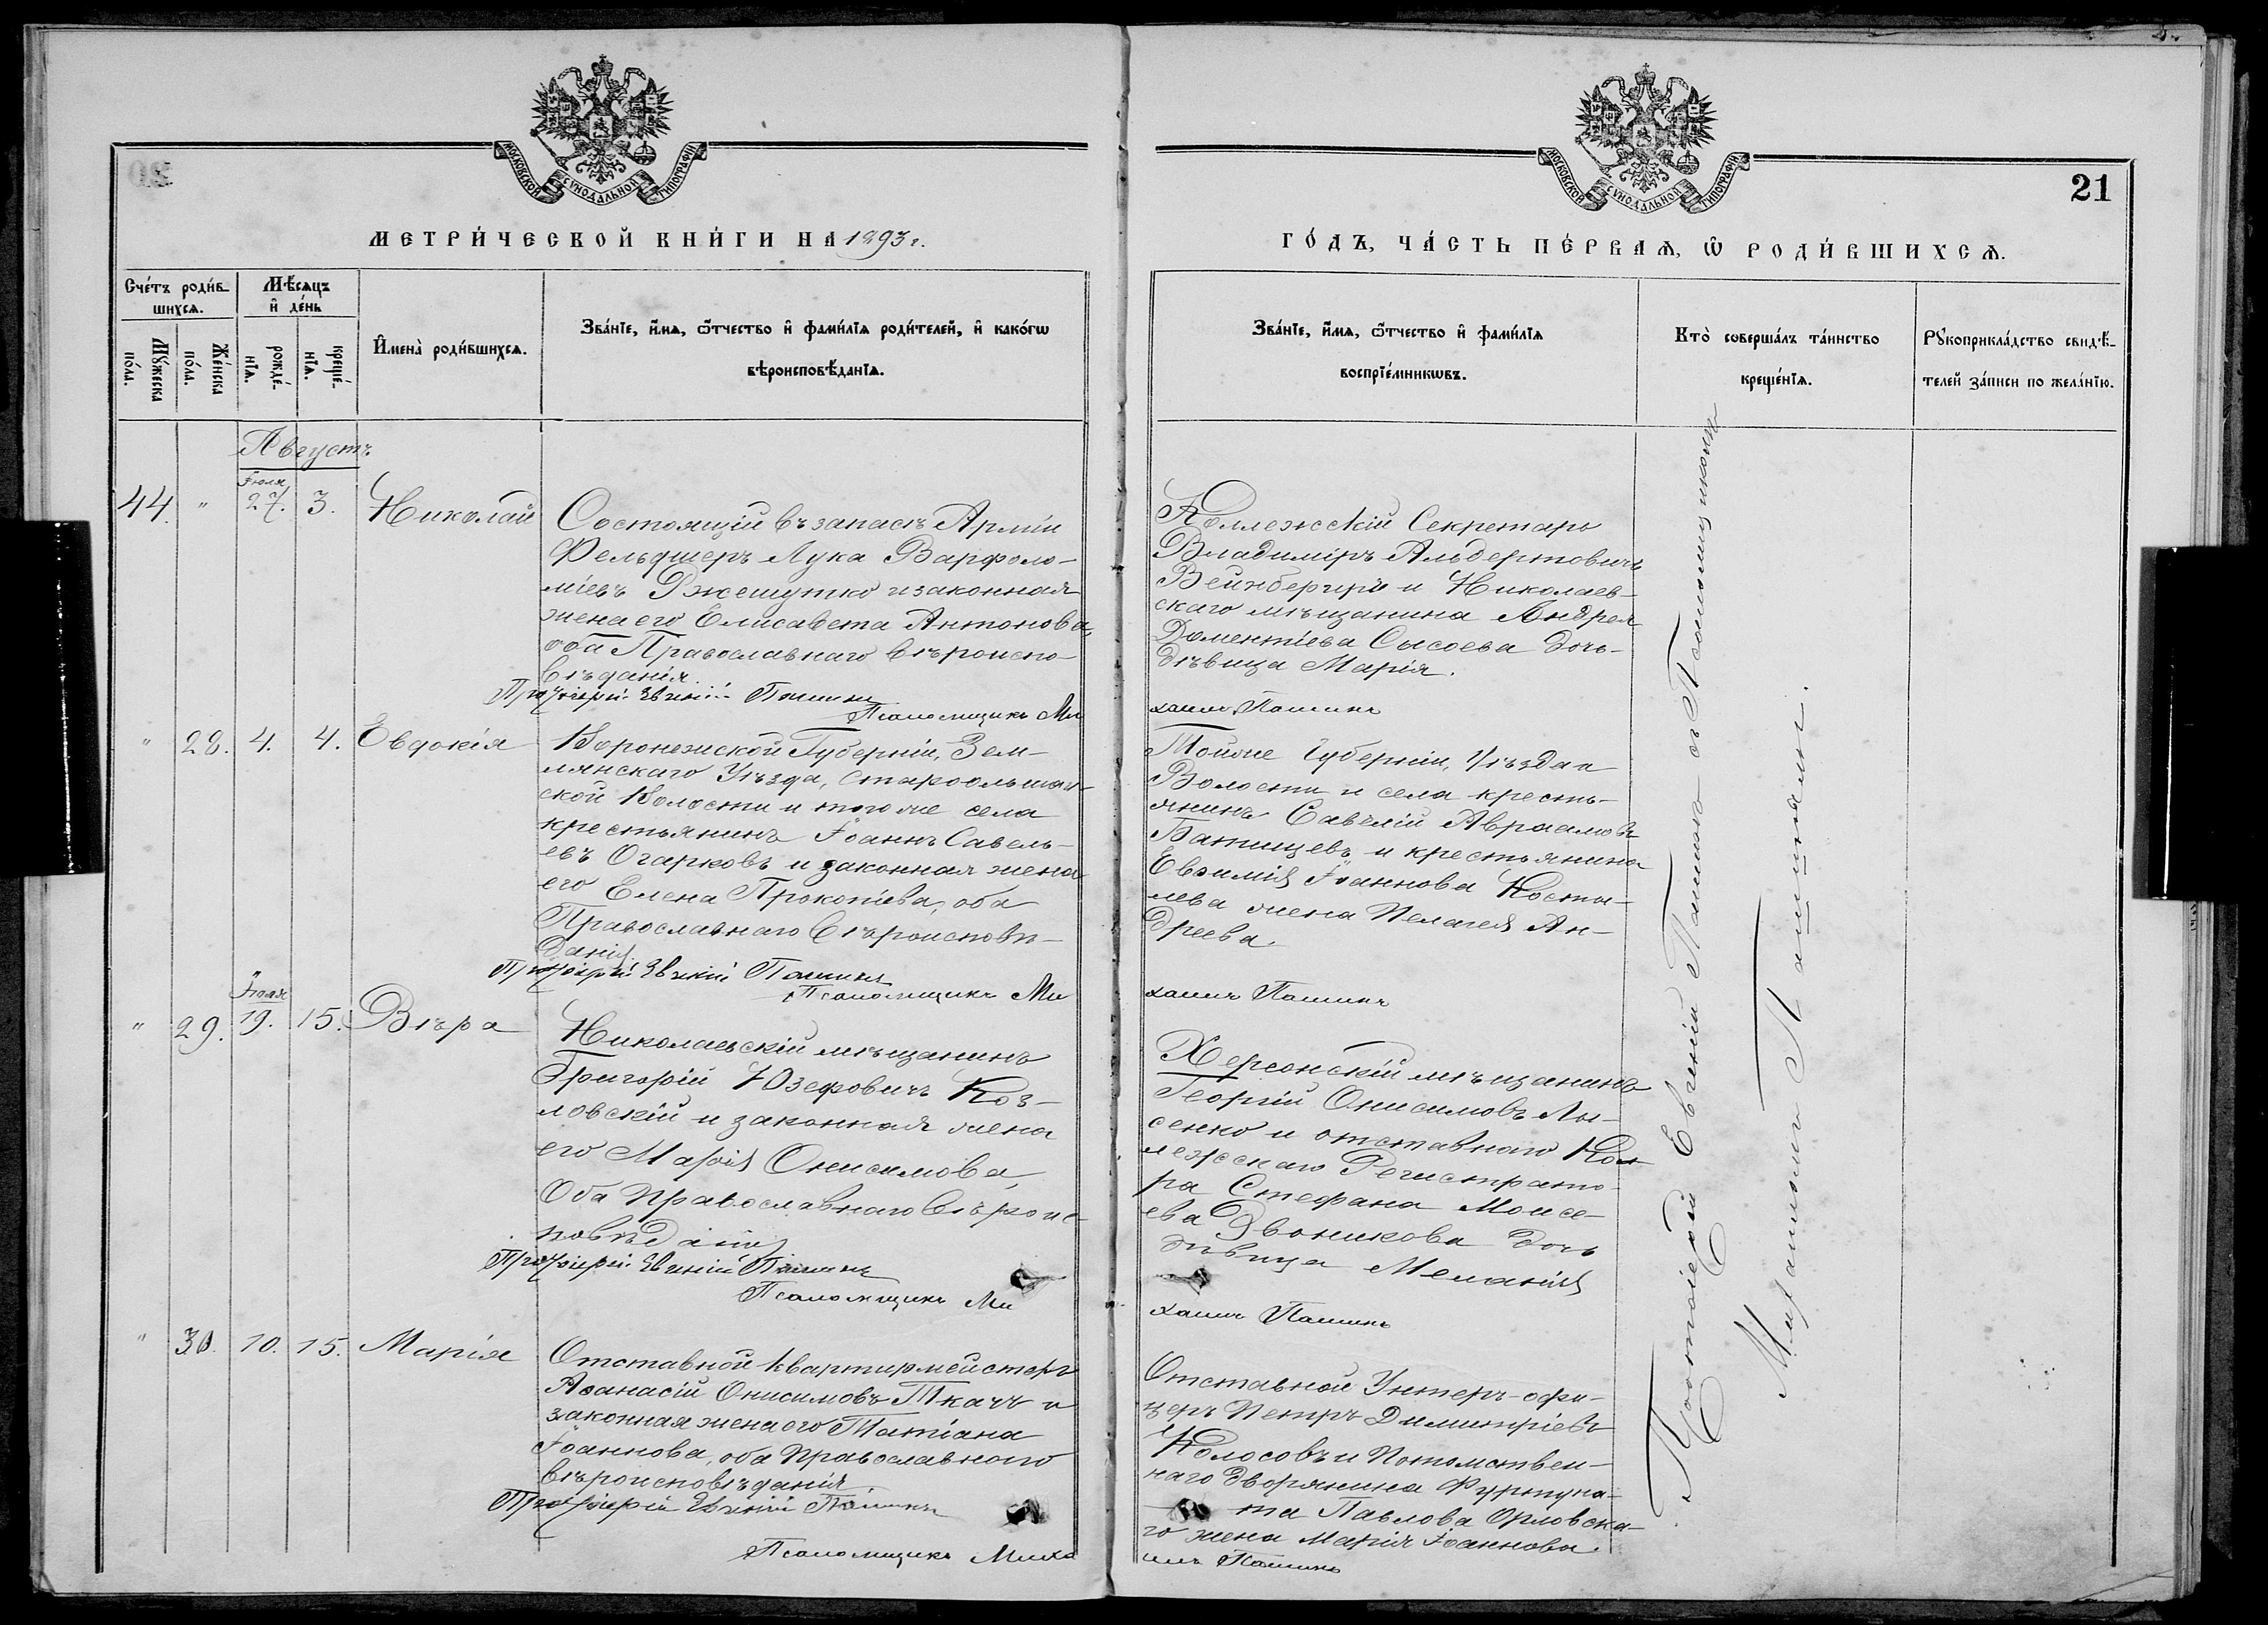 МОСКОВСКОЙ СѴНОДАЛЬНОЙ ТИПОГРАФІИ
МЕТРИ́ЧЕСКОЙ КНИ́ГИ НА 1893 г.
Сче́тъ роди́вшихся.
Мѣ́сяцъ и де́нь
Му́жеска по́ла.
Же́нска по́ла.
рожде́нїя.
креще́нїя.
И҆мена̀ роди́вшихся.
Зва́нїе, и҆́мя, ѻ҆́тчество и҆ фами́лїя роди́телей, и҆ како́гѡ
вѣроисповѣ́данїя.
Августъ
44. " Іюля 27. 3. Николай
Состоящій въ запасѣ Арміи
Фельдшеръ Лука Варфоло-
міевъ Ржешутко и законная
жена его Елисавета Антонова,
оба Православнаго вѣроиспо-
вѣданія.
Протоіерей Евгеній Пашинъ
Псаломщикъ Ми
" 28. 4. 4. Евдокія
Воронежской Губерніи, Зем-
лянскаго Уѣзда, Староольшан-
ской Волости и того же села
крестьянинъ Іоаннъ Савель-
евъ Огарковъ и законная жена
его Елена Прокопіева, оба
Православнаго вѣроисповѣ-
данія.
Протоіерей Евгеній Пашинъ
Псаломщикъ Ми
" 29. Іюля 19. 15. Вѣра
Николаевскій мѣщанинъ
Григорій Юзефовичъ Коз-
ловскій и законная жена
его Марія Онисимова,
Оба Православнаго вѣроис-
повѣданія
Протоіерей Евгеній Пашинъ
Псаломщикъ Ми
" 30. 10. 15. Марія
Отставной квартирмейстеръ
Аѳанасій Онисимовъ Ткачъ и
законная жена его Татіана
Іоаннова, оба Православнаго
вѣроисповѣданія
Протоіерей Евгеній Пашинъ
Псаломщикъ Миха
МОСКОВСКОЙ СѴНОДАЛЬНОЙ ТИПОГРАФІИ
21
ГО́ДЪ, ЧА́СТЬ ПЕ́РВАЯ, Ѡ РОДИ́ВШИХСЯ.
Зва́нїе, и҆́мя, ѻ҆́тчество и҆ фами́лїя
воспрїе́мникѡвъ.
Кто̀ соверша́лъ та́инство
креще́нїя.
Рꙋкоприкла́дство свидѣ́-
телей за́писи по жела́нїю.
Коллежскій Секретарь
Владиміръ Альбертовичъ
Вейнбергъ и Николаев-
скаго мѣщанина Андрея
Доментіева Сысоева дочь-
дѣвица Марія.
хаилъ Пашинъ
Той же Губерніи, Уѣзда и
Волости и села кресть-
янинъ Савелій Авраамовъ
Батищевъ и крестьянина
Евѳимія Іоаннова Косты-
лева жена Пелагея Ан-
дреева.
хаилъ Пашинъ
Херсонскій мѣщанинъ
Георгій Онисимовъ Лы-
сенко и отставнаго Кол-
лежскаго Регистрато-
ра Стефана Моисе-
ева Двоникова дочь
дѣвица Меланія
хаилъ Пашинъ
Отставной Унтеръ-офи-
церъ Петръ Димитріевъ
Колосовъ и Потомствен-
наго дворянина Фуртуна-
та Павлова Орловска-
го жена Марія Іоаннова.
илъ Пашинъ
Протоіерей Евгеній Пашинъ съ Псаломщикомъ
Михаиломъ Пашинымъ.